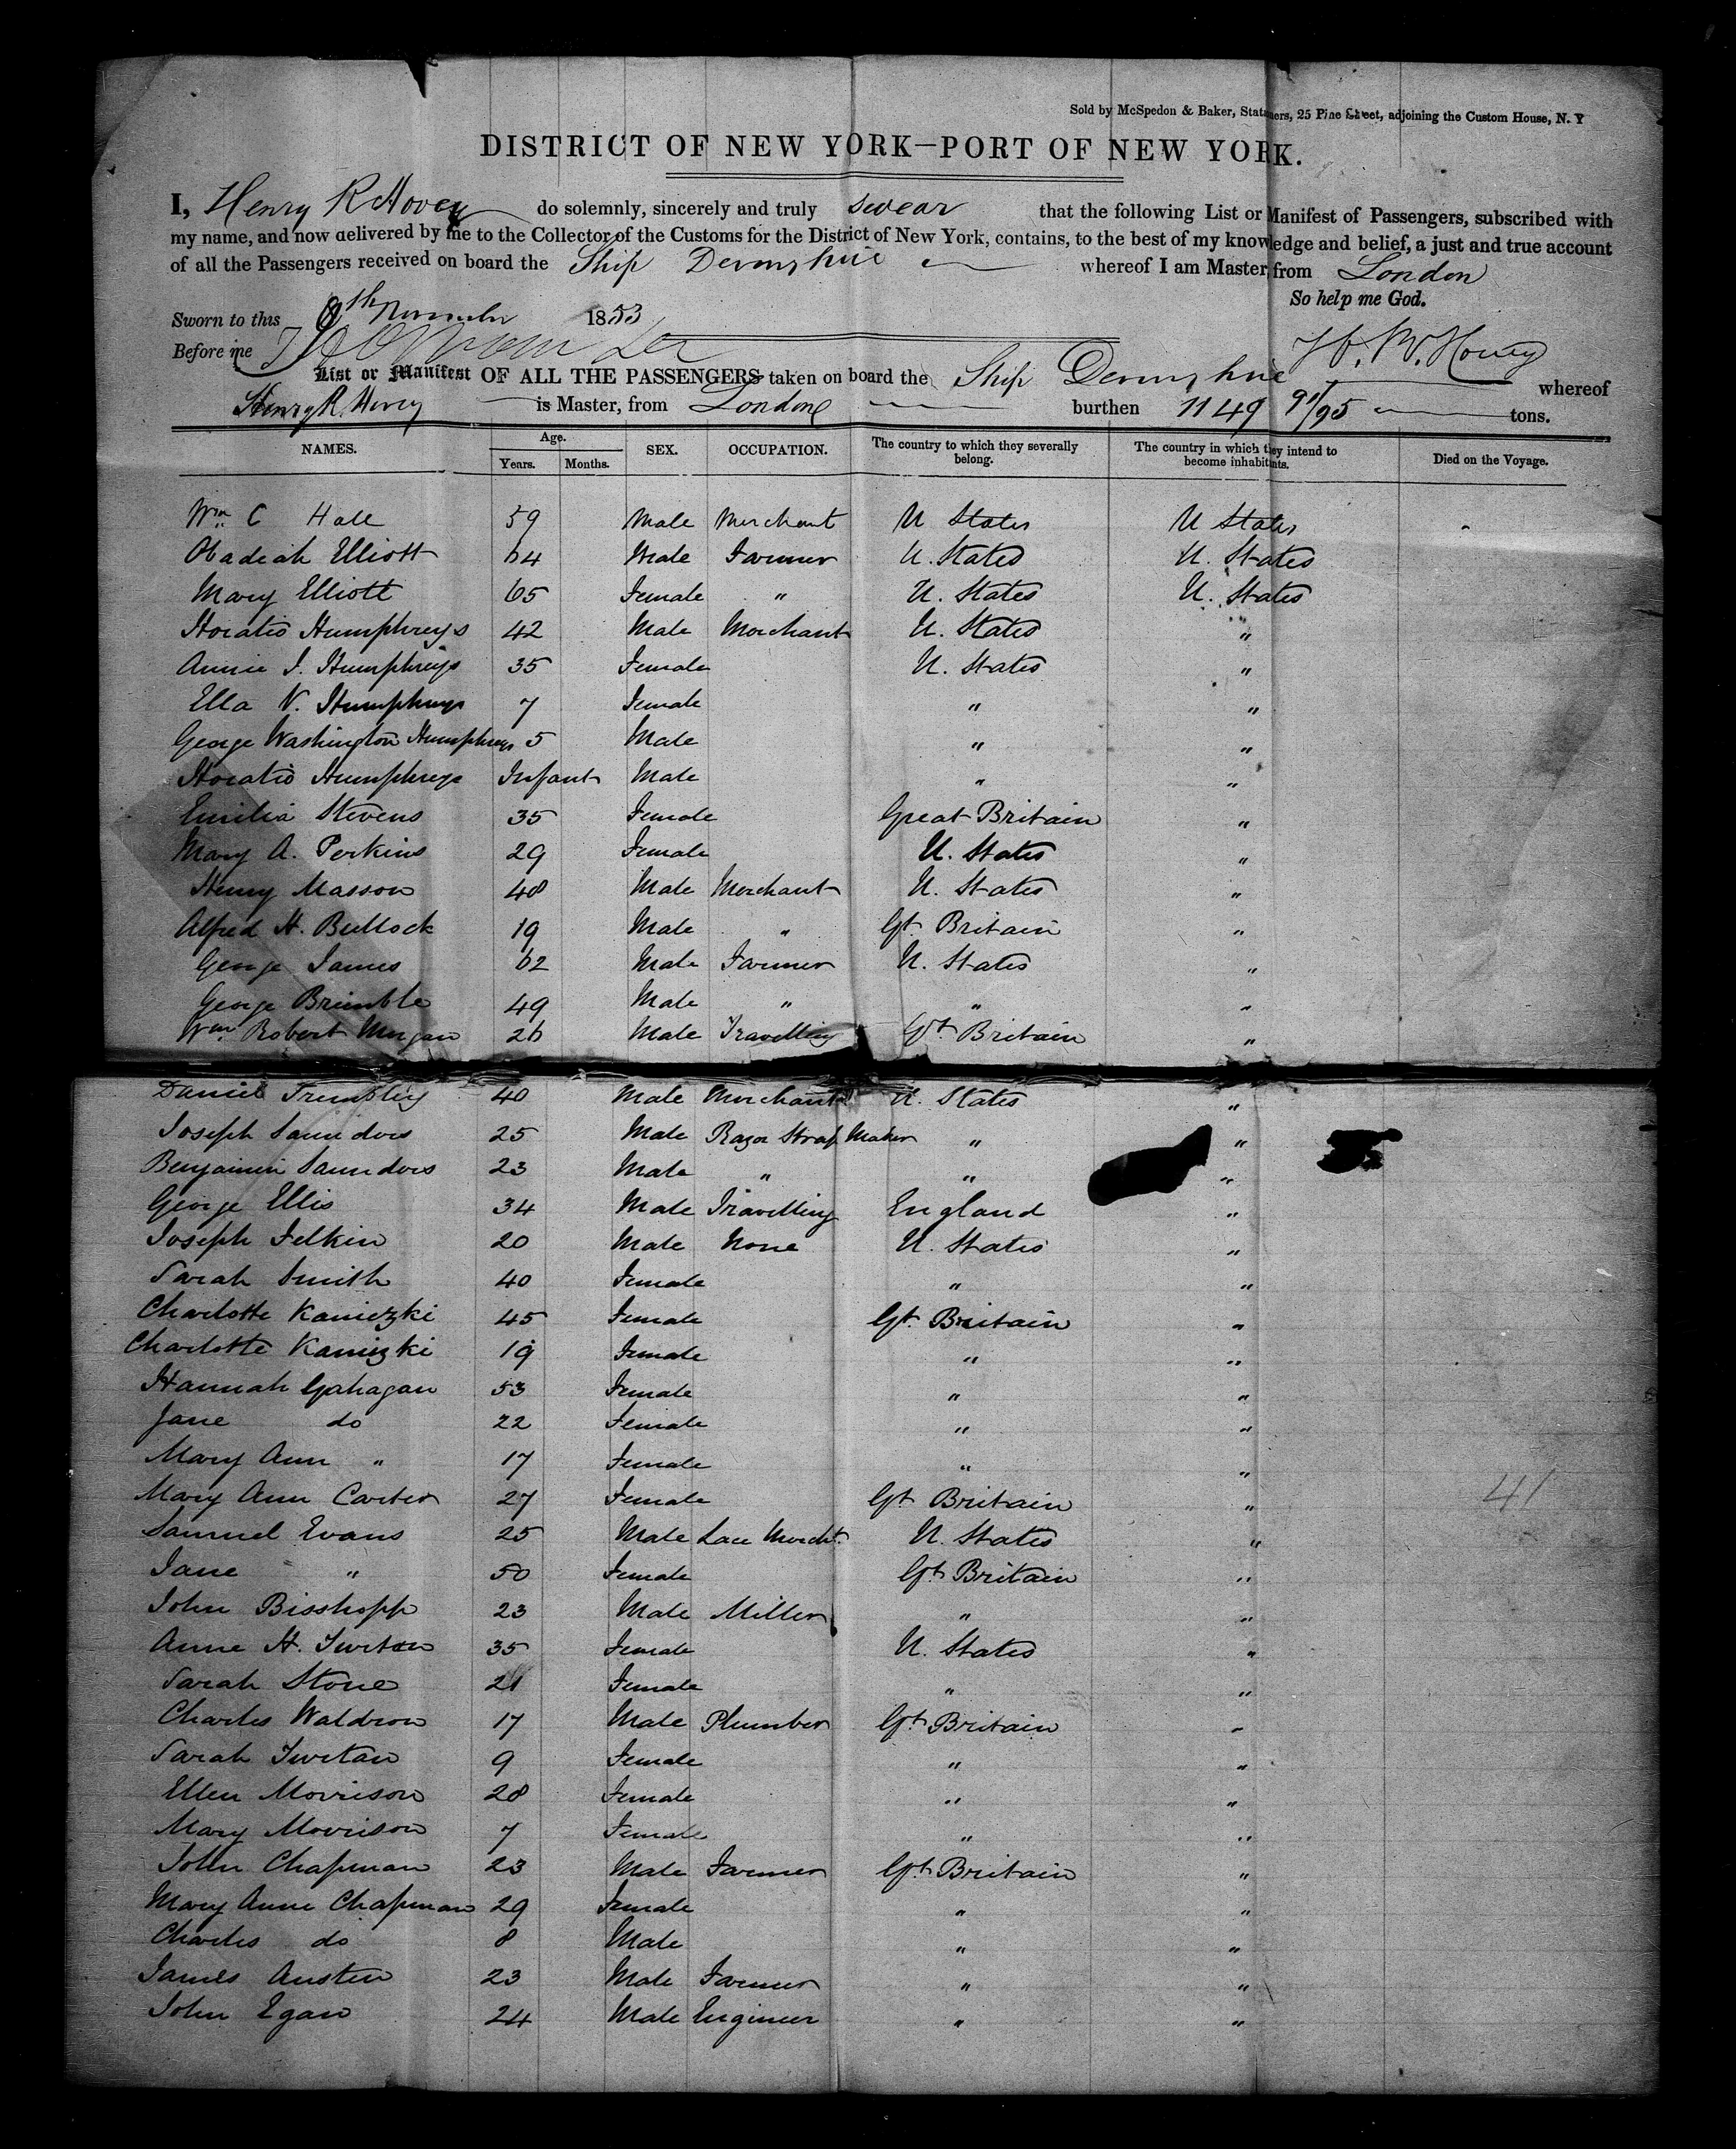 Sold by McSpedon & Baker, Stationers, 25 Pine Street, adjoining the Custom House, N. Y
DISTRICT OF NEW YORK—PORT OF NEW YORK.
I, Henry R Hovey do solemnly, sincerely and truly swear that the following List or Manifest of Passengers, subscribed with
my name, and now delivered by me to the Collector of the Customs for the District of New York, contains, to the best of my knowledge and belief, a just and true account
of all the Passengers received on board the Ship Devonshire whereof I am Master, from London
So help me God.
Sworn to this 8th November 1853
Before me
H. W. Hovey
List or Manifest OF ALL THE PASSENGERS taken on board the Ship Devonshire whereof
Henry R. Hovey is Master, from London burthen 1149 91/95 tons.
NAMES. Age. Years. Months. SEX. OCCUPATION. The country to which they severally belong. The country in which they intend to become inhabitants. Died on the Voyage.
Wm C Hall 59 Male Merchant U States U States
Obadiah Elliott 64 Male Farmer U. States U. States
Mary Elliott 65 Female " U. States U. States
Horatio Humphreys 42 Male Merchant U. States "
Annie J. Humphreys 35 Female U. States "
Ella V. Humphreys 7 Female " "
George Washington Humphreys 5 Male " "
Horatio Humphreys Infant Male " "
Emilia Stevens 35 Female Great Britain "
Mary A. Perkins 29 Female U. States "
Henry Masson 48 Male Merchant U. States "
Alfred H. Bullock 19 Male " Gt Britain "
George James 62 Male Farmer U. States "
George Brimble 49 Male " " "
Wm Robert Morgan 26 Male Travelling Gt Britain "
Daniel Trembley 40 Male Merchant U. States "
Joseph Saunders 25 Male Razor Strap Maker " "
Benjamin Saunders 23 Male " " "
George Ellis 34 Male Travelling England "
Joseph Felkin 20 Male None U. States "
Sarah Smith 40 Female " "
Charlotte Kaniezki 45 Female Gt Britain "
Charlotte Kaniezki 19 Female " "
Hannah Gahagan 53 Female " "
Jane do 22 Female " "
Mary Ann " 17 Female " "
Mary Ann Carter 27 Female Gt Britain " 41
Samuel Evans 25 Male Lace Mercht. U. States "
Jane " 50 Female Gt Britain "
John Bisshopp 23 Male Miller " "
Anne H. 35 Female U. States "
Sarah Stone 21 Female " "
Charles Waldron 17 Male Plumber Gt Britain "
Sarah 9 Female " "
Ellen Morrison 28 Female " "
Mary Morrison 7 Female " "
John Chapman 23 Male Farmer Gt Britain "
Mary Anne Chapman 29 Female " "
Charles do 8 Male " "
James Austen 23 Male Farmer " "
John Egan 24 Male Engineer " "